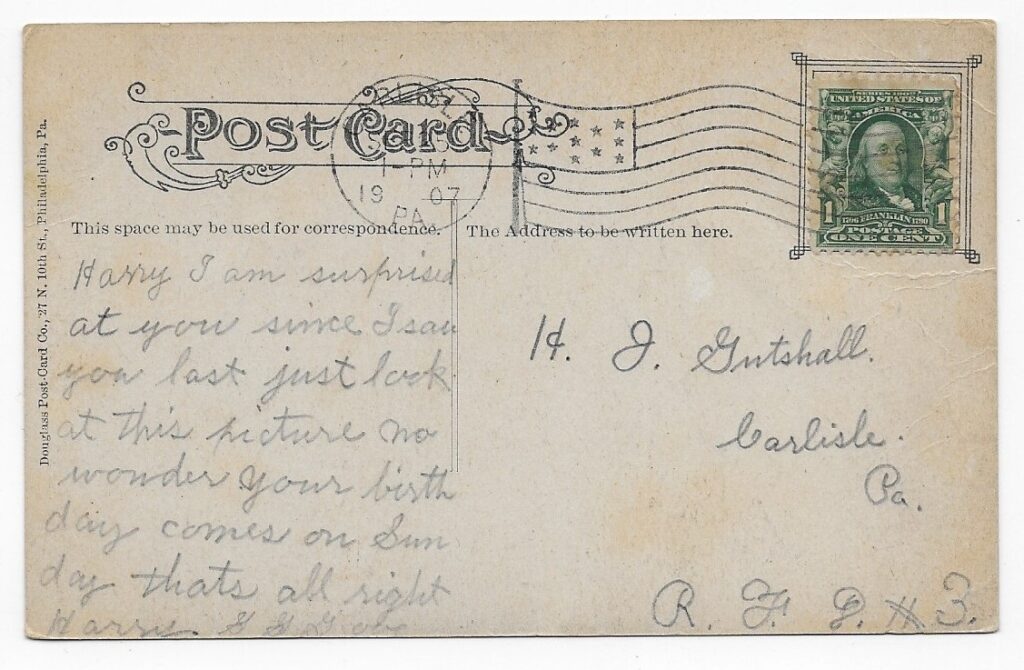 Post Card
1-PM
19 07
PA
SERIES 1902
UNITED STATES OF
AMERICA
1706 FRANKLIN 1790
1 1
POSTAGE
ONE CENT
This space may be used for correspondence.
The Address to be written here.
Douglass Post-Card Co., 27 N. 10th St., Philadelphia, Pa.
Harry I am surprised
at you since I saw
you last just look
at this picture no
wonder your birth
day comes on Sun
day thats all right
Harry.
H. J. Gutshall.
Carlisle.
Pa.
R. F. D. # 3.